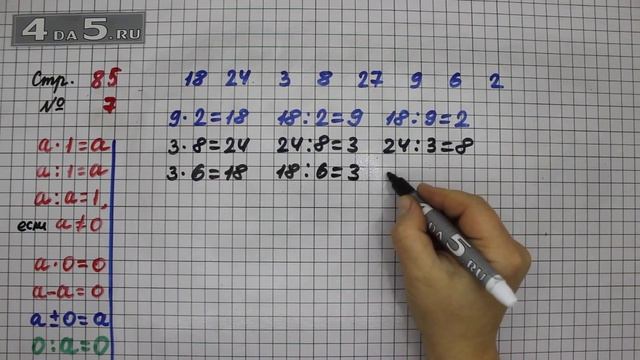 4 ДА 5.RU
Стр. 85
№ 7
18 24 3 8 27 9 6 2
9·2=18 18:2=9 18:9=2
3·8=24 24:8=3 24:3=8
3·6=18 18:6=3
a·1=a
a:1=a
a:a=1,
если a≠0
a·0=0
a-a=0
a±0=a
0:a=0
4 ДА 5.RU